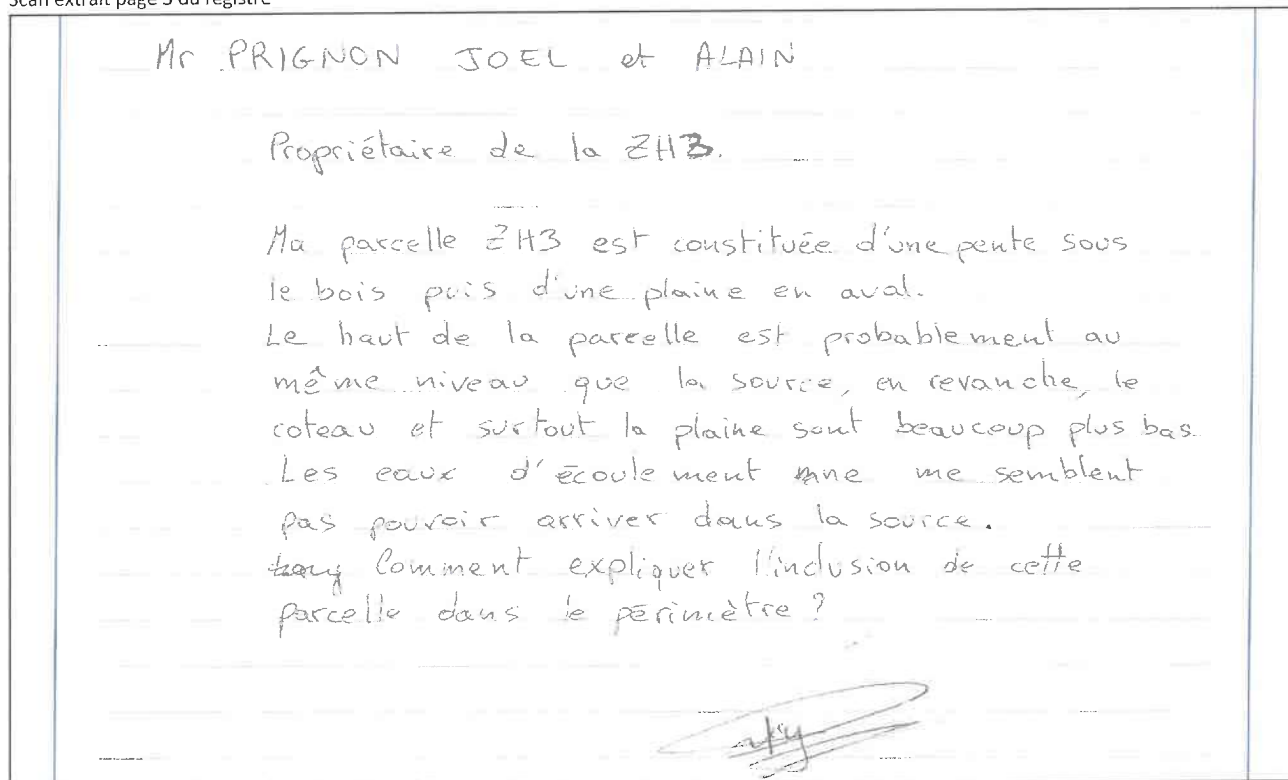 Scan extrait page 5 du registre
Mr PRIGNON JOEL et ALAIN
Propriétaire de la ZH3.
Ma parcelle ZH3 est constituée d'une pente sous
le bois puis d'une plaine en aval.
Le haut de la parcelle est probablement au
même niveau que la source, en revanche, le
coteau et surtout la plaine sont beaucoup plus bas.
Les eaux d'écoulement ne me semblent
pas pouvoir arriver dans la source.
Comment expliquer l'inclusion de cette
parcelle dans le périmètre ?